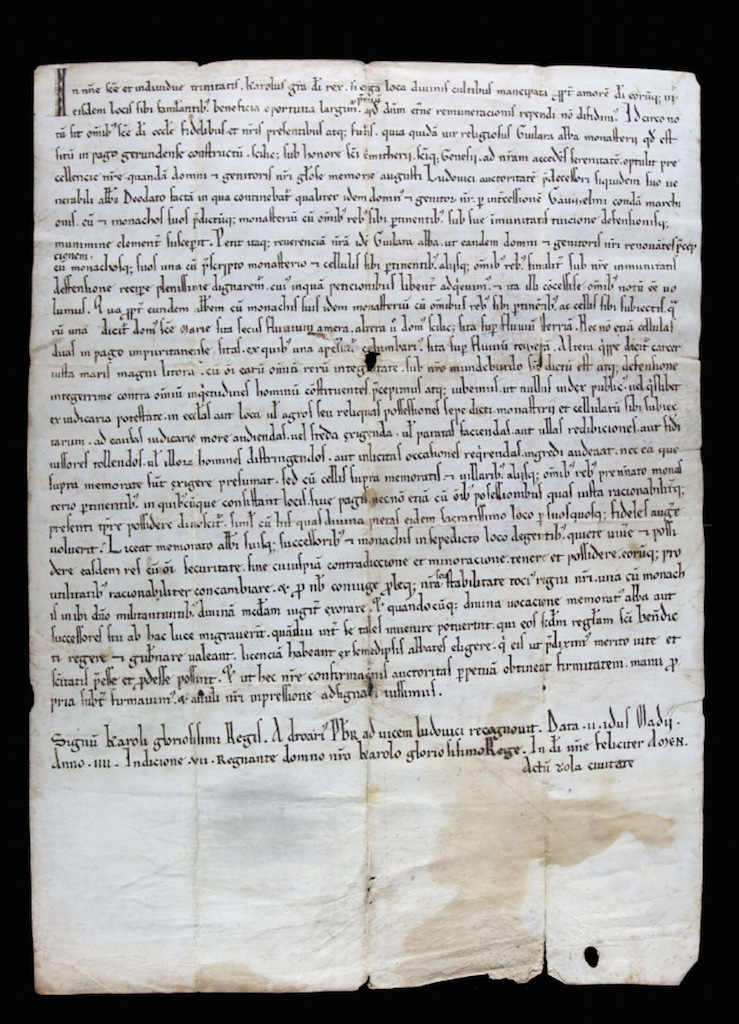 In nñe sc̃e et individue trinitatis. karolus grã dĩ rex. si erga loca divinis cultibus mancipata ꝓpt̃ amorẽ dĩ eorũq; in
eisdem locis sibi famlantib; beneficia oportuna largim̃ p̃miũ apd̃ dñm etñe remuneracionis rependi nõ difidim̃. Idcirco no
tũ sit omĩb; sc̃e dĩ eccłe fidelibus et nr̃is presentibus atq; futuris. quia quidã vir religiosus Guilara abba monasterij qd̃ est
sitũ in pago gerundense constructũ. scilic; sub honore sc̃i emitherij. sc̃iq; Genesij. ad nr̃am accedẽs serenitatẽ. optulit pre
cellencie nr̃e quandã domni ⁊ genitoris nr̃i glõse memorie augusti Ludovici auctoritatẽ p̃decessori siquidem suo ve
nerabili abbĩ Deodato factã in qua continebat̃ qualiter idem domn̄ ⁊ genitor nr̃. p intcessionẽ Gauscelmi condã marchi
onis. eũ ⁊ monachos suos p̃dictũq; monasteriũ cũ omib; reb; sibi ptinentib; sub sue imunitatis tuicione defensionisq;
munimine clement̃ suscepit. Petit itaq; reverenciã nr̃ã idẽ Guilara abba. ut eandem domni ⁊ genitoris nr̃i renovares precep
cionem
eũ monachosq; suos una cũ p̃scripto monasterio ⁊ cellulis sibi ptinentib; alijsq; omib; reb; similit̃ sub nr̃e inmunitatis
deffensione recipe plenissime dignarem̃. cui; inquã peticionibus libent̃ adqevim̃. ⁊ ita illi cõcessisse omib; notũ eẽ vo
lumus. Qua ꝓpt̃ eundem abbem cũ monachis suis idem monasteriũ cũ omibus reb; sibi ptinẽtib; ac cellis sibi subiectis. q̃
rũ una dicit̃ dom̃ sc̃e Marie sita secus fluvium amera. altera ũ domũ scilic; sita sup fluviũ sterria. Nec nõ etiã cellulas
duas in pago impuritanense. sitas. ex quib; una apellat̃ columbari. sita sup fluviũ revera. Altera q̃ppe dicit̃ carcer
iusta maris magni litora. cũ õi earũ omiũ rerũ integritate. sub nr̃o mundeburdo sic̃ dictũ est atq; defensione
integerrime contra omiũ inq̃etudines hominũ cõstituentes p̃cepimus atq; iubemus ut nullus iudex public; vel q̃slibet
ex iudicaria potestate. in ecclãs aut loca vł agros seu reliquas possessiones sepe dicti monasterij et cellularũ sibi subiec
tarum. ad causas iudicario more audiendas. vel freda exigenda. vł paratas faciendas. aut ullas redibiciones. aut fidi
iussores tollendos. vł illor̃ homines distringendos. aut illicitas occasiones reqirendas. ingredi audeat. nec ea que
supra memorate sũt exigere presumat. sed cũ cellis supra memoratis. ⁊ villarib; alijsq; omib; reb; prenñato monas
terio ptinentib; in quibuscũque consistant locis. sive pagis. necnõ etiã cũ õib; possessionibus quas iusta racionabiliq;
presenti tp̃re possidere dinoscit̃. simł cũ his quas divina pietas eidem sacratissimo loco p suosquosq; fideles auge
voluerit. Liceat memorato abbi suisq; successorib; ⁊ monachis in sepedicto loco degentib; quiete vivẽ ⁊ possi
dere easdem res cũ õi securitate. sine cuiuspiã contradiccione et minoracione. tenere et possidere. eorũq; pro
utilitatib; racionabiliter concambiare. & p nõb coniuge ꝓleq; nr̃a seu stabilitate toci; regni nr̃i. una cũ monach
is inibi dño militantuntib; divinã mc̃dam iugit̃ exorare. Et quandocũq; divina vocacione memorat; abba aut
successores sui ab hac luce migraverit. quãdiu int̃ se tales invenire potuerint. qui eos scđm reglam sc̃i benđic
ti regere ⁊ gub̃nare valeant. licenciã habeant ex semedipsis abbates eligere. q̃ eis ut p̃diximi merito vite et
sc̃itatis p̃esse et ꝓdesse possint. Et ut hec nr̃e confirmacionis auctoritas perpetuã obtineat firmitatem. manu ꝓ
pria subt̃ firmavim̃. & anuli nr̃i inpressione adsignari iussimus.
Signũ karoli gloriosissimi Regis. Adroari; Pbr̃ ad vicem ludovici recognovit. Data .ii. idus Madij.
Anno .iiii. Indicione .vii. Regnante domno nr̃o karolo gloriosissimo Rege. In dĩ nñe feliciter AMEN.
Actũ tola civitate